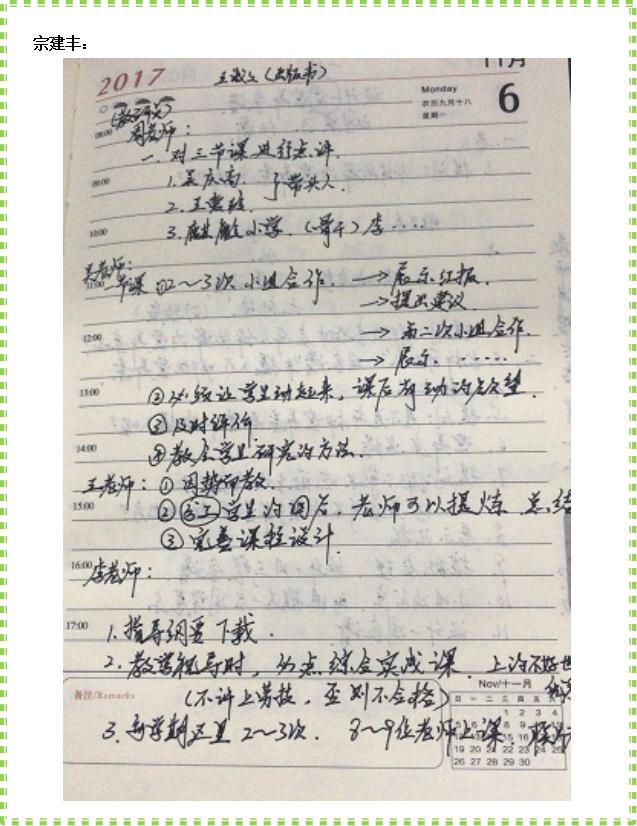 宗建丰：
2017 王成文（出版书） 11月
Monday
农历九月十八
星期一
6
（教研员）
08:00 周老师：
一、对三节课进行点评.
09:00 1. 吴庆高. 带头人
2. 王
10:00 3. 麒麟小学.（骨干）李……
老师：
11:00 一节课 ①2～3次小组合作. → 展示汇报.
→ 提出建议
12:00 → 第二次小组合作.
→ 展示. ……
13:00 ② 必须让学生动起来，课后有动的欲望.
③ 及时评价
14:00 ④ 教会学生研究的方法.
王老师：① 因势而教
15:00 ② 学生的回答，老师可以提炼 总结
③ 完善课程设计.
16:00 李老师：
17:00 1. 指导纲要下载.
2. 教学视导时，的点综合实践课. 上的不好
备注/Remarks （不许上劳技，否则不合格）
3. 新学期这里2～3次. 8～9位老师上课
Nov/十一月
日 一 二 三 四 五 六
1 2 3 4
5 6 7 8 9 10 11
12 13 14 15 16 17 18
19 20 21 22 23 24 25
26 27 28 29 30